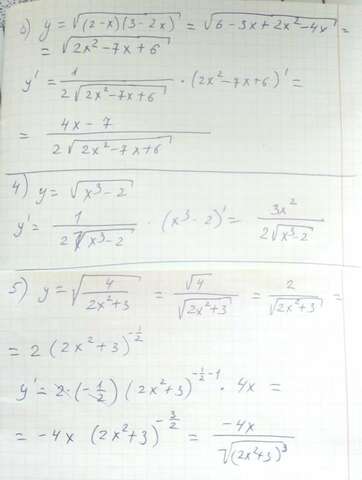 б) y = √((2-x)(3-2x)) = √(6-3x+2x²-4x) =
= √(2x²-7x+6)
y' = 1/(2√(2x²-7x+6)) · (2x²-7x+6)' =
= (4x-7)/(2√(2x²-7x+6))
4) y = √(x³-2)
y' = 1/(2√(x³-2)) · (x³-2)' = 3x²/(2√(x³-2))
5) y = √(4/(2x²+3)) = √4/√(2x²+3) = 2/√(2x²+3) =
= 2(2x²+3)^(-1/2)
y' = 2·(-1/2)(2x²+3)^(-1/2-1) · 4x =
= -4x (2x²+3)^(-3/2) = -4x/√((2x²+3)³)